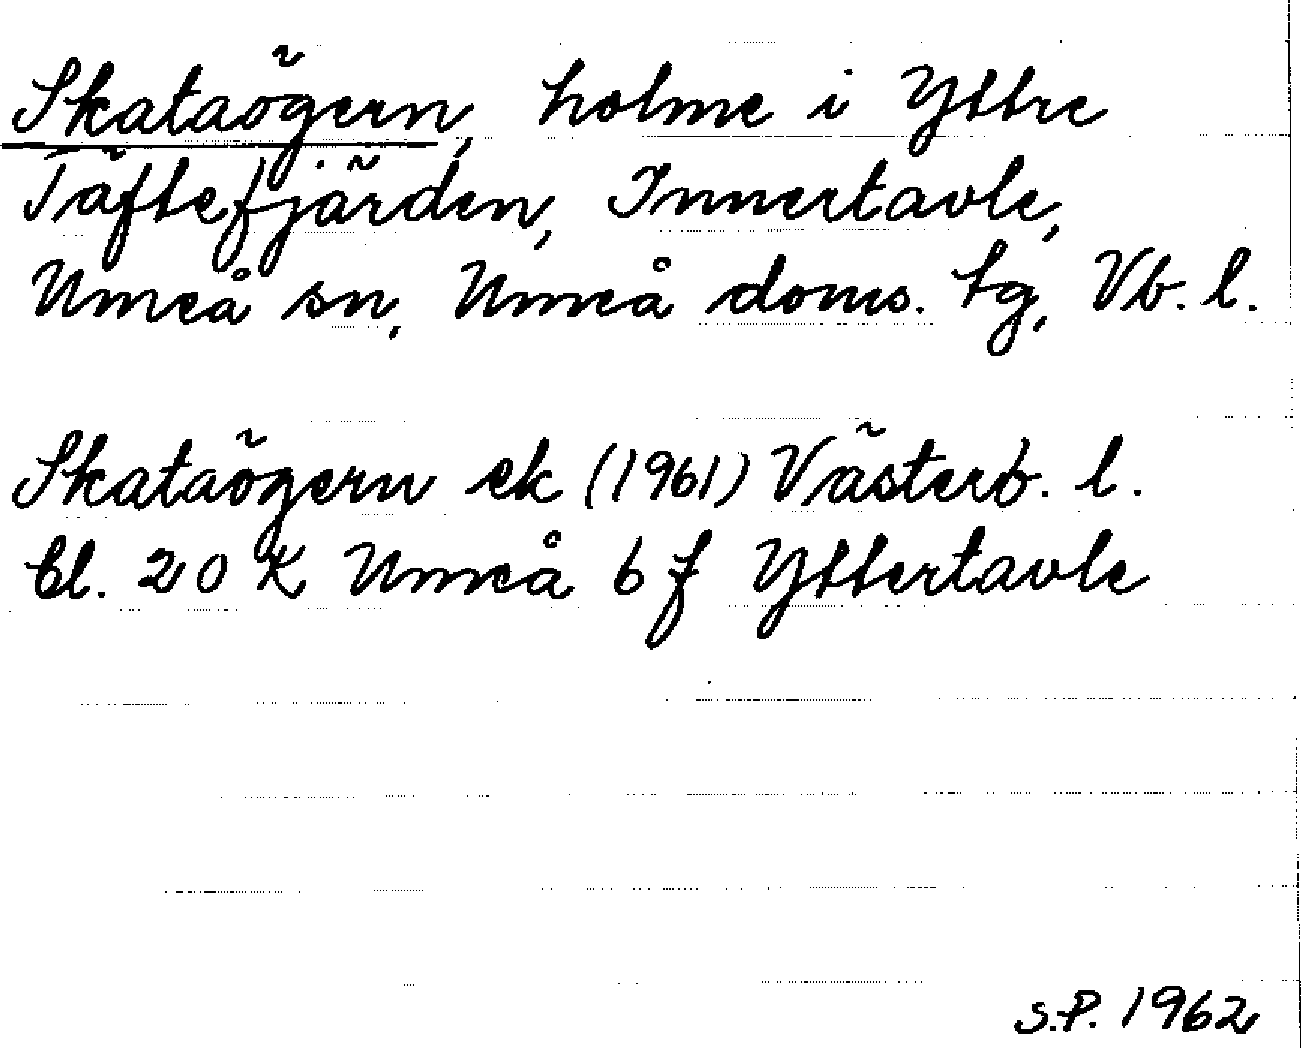 Skataögern, holme i Yttre
Täftefjärden, Innertavle,
Umeå sn, Umeå doms. tg, Vb. l.
Skataögern ek (1961) Västerb. l.
bl. 20 K Umeå 6 f Yttertavle
S.P. 1962